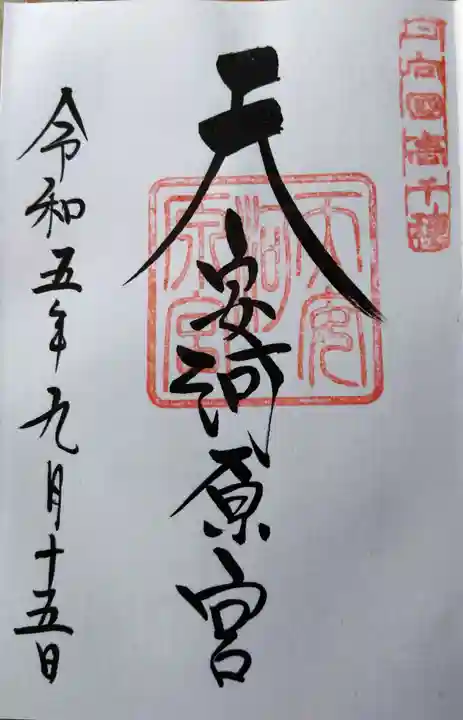 日向國高千穂
天安河原宮
天安河原宮
令和五年九月十五日